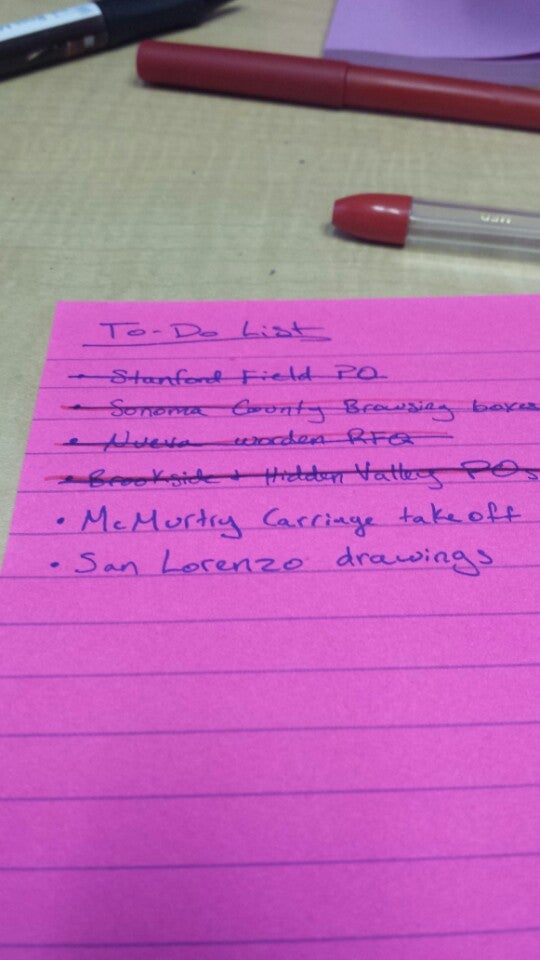 To-Do List
• Stanford Field PO
• Sonoma County Browsing boxes
• Nueva worden RFQ
• Brookside + Hidden Valley POs
• McMurtry Carriage take off
• San Lorenzo drawings
RED